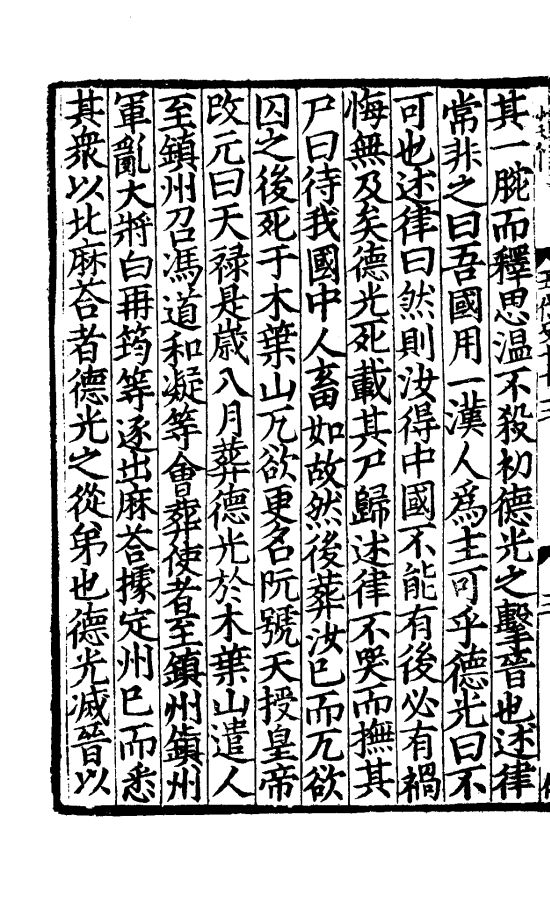 其一腕而釋思温不殺初德光之擊晉也述律
常非之曰吾國用一漢人爲主可乎德光曰不
可也述律曰然則汝得中國不能有後必有禍
悔無及矣德光死載其尸歸述律不哭而撫其
尸曰待我國中人畜如故然後葬汝已而兀欲
囚之後死于木葉山兀欲更名阮號天授皇帝
改元曰天禄是歲八月葬德光於木葉山遣人
至鎮州召馮道和凝等會葬使者至鎮州鎮州
軍亂大將白再筠等逐出麻荅據定州已而悉
其衆以北麻荅者德光之從弟也德光滅晉以